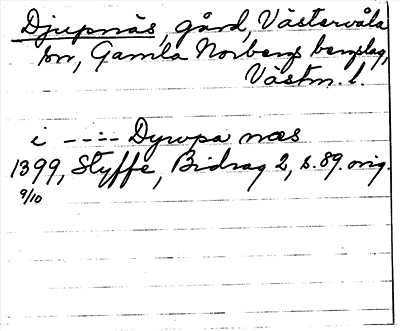 Djupnäs, gård, Västervåla
sn, Gamla Norbergs bergslag,
Västm. l.
i --:- Dywpa næs
1399, Styffe, Bidrag 2, s. 89. orig.
9/10